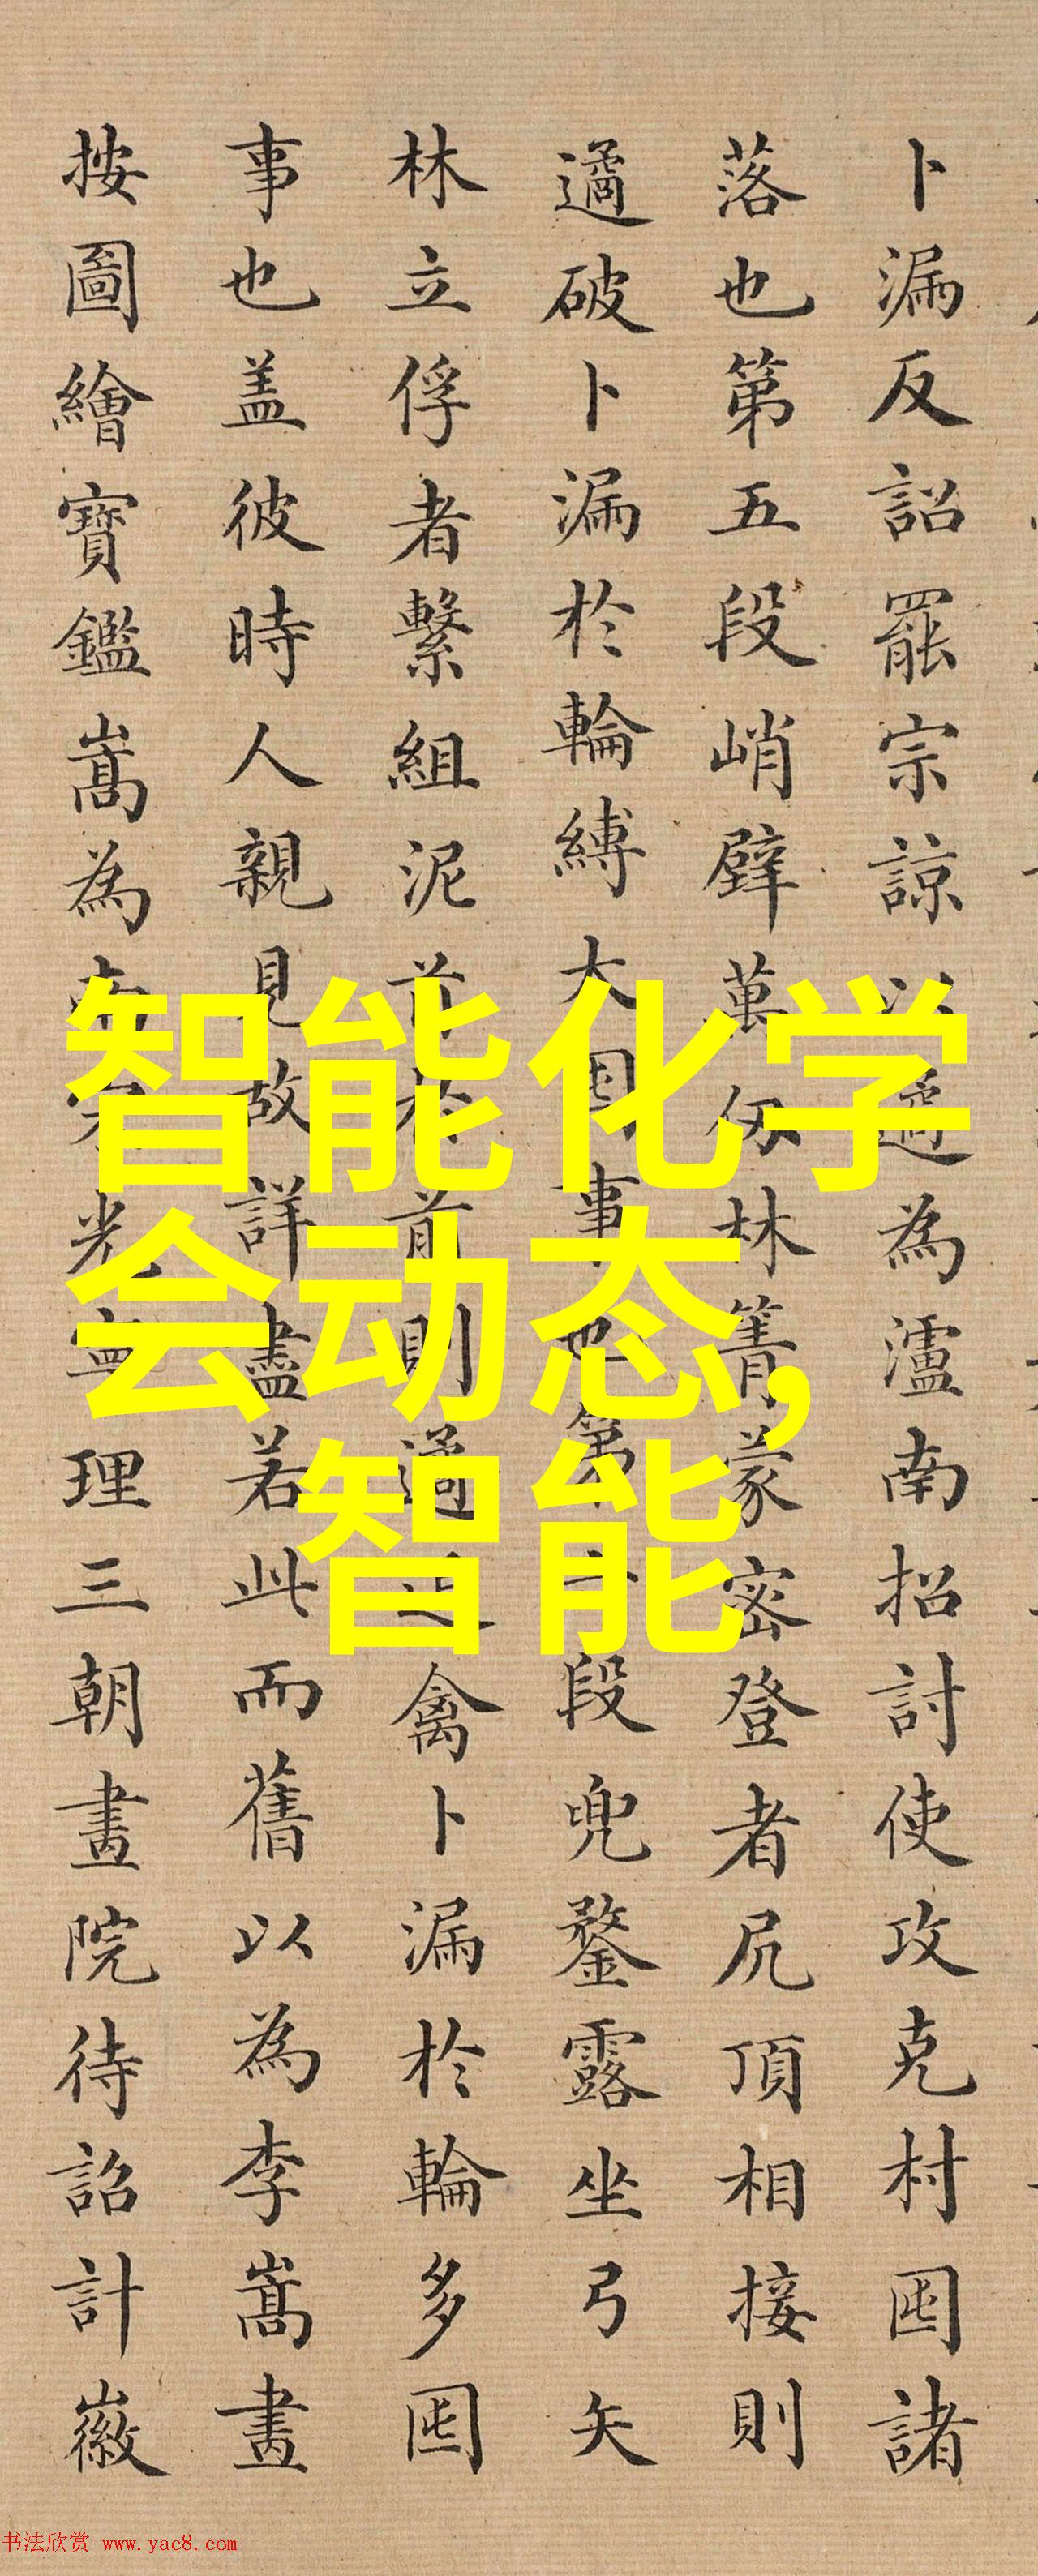 卜漏反詔罷宗諒以遹為瀘南招討使攻克村囤諸
落也第五段峭壁萬仞林箐蒙密登者尻頂相接則
遹破卜漏於輪縛大囤事也第段兜鍪露坐弓矢
林立俘者繫組泥首於前則遹之禽卜漏於輪多囤
事也盖彼時人親見故詳盡若此而舊以為李嵩畫
按圖繪寶鑑嵩為南宋光寧理三朝畫院待詔計徽
智能化学
会动态,
智能
书法欣赏 www.yac8.com